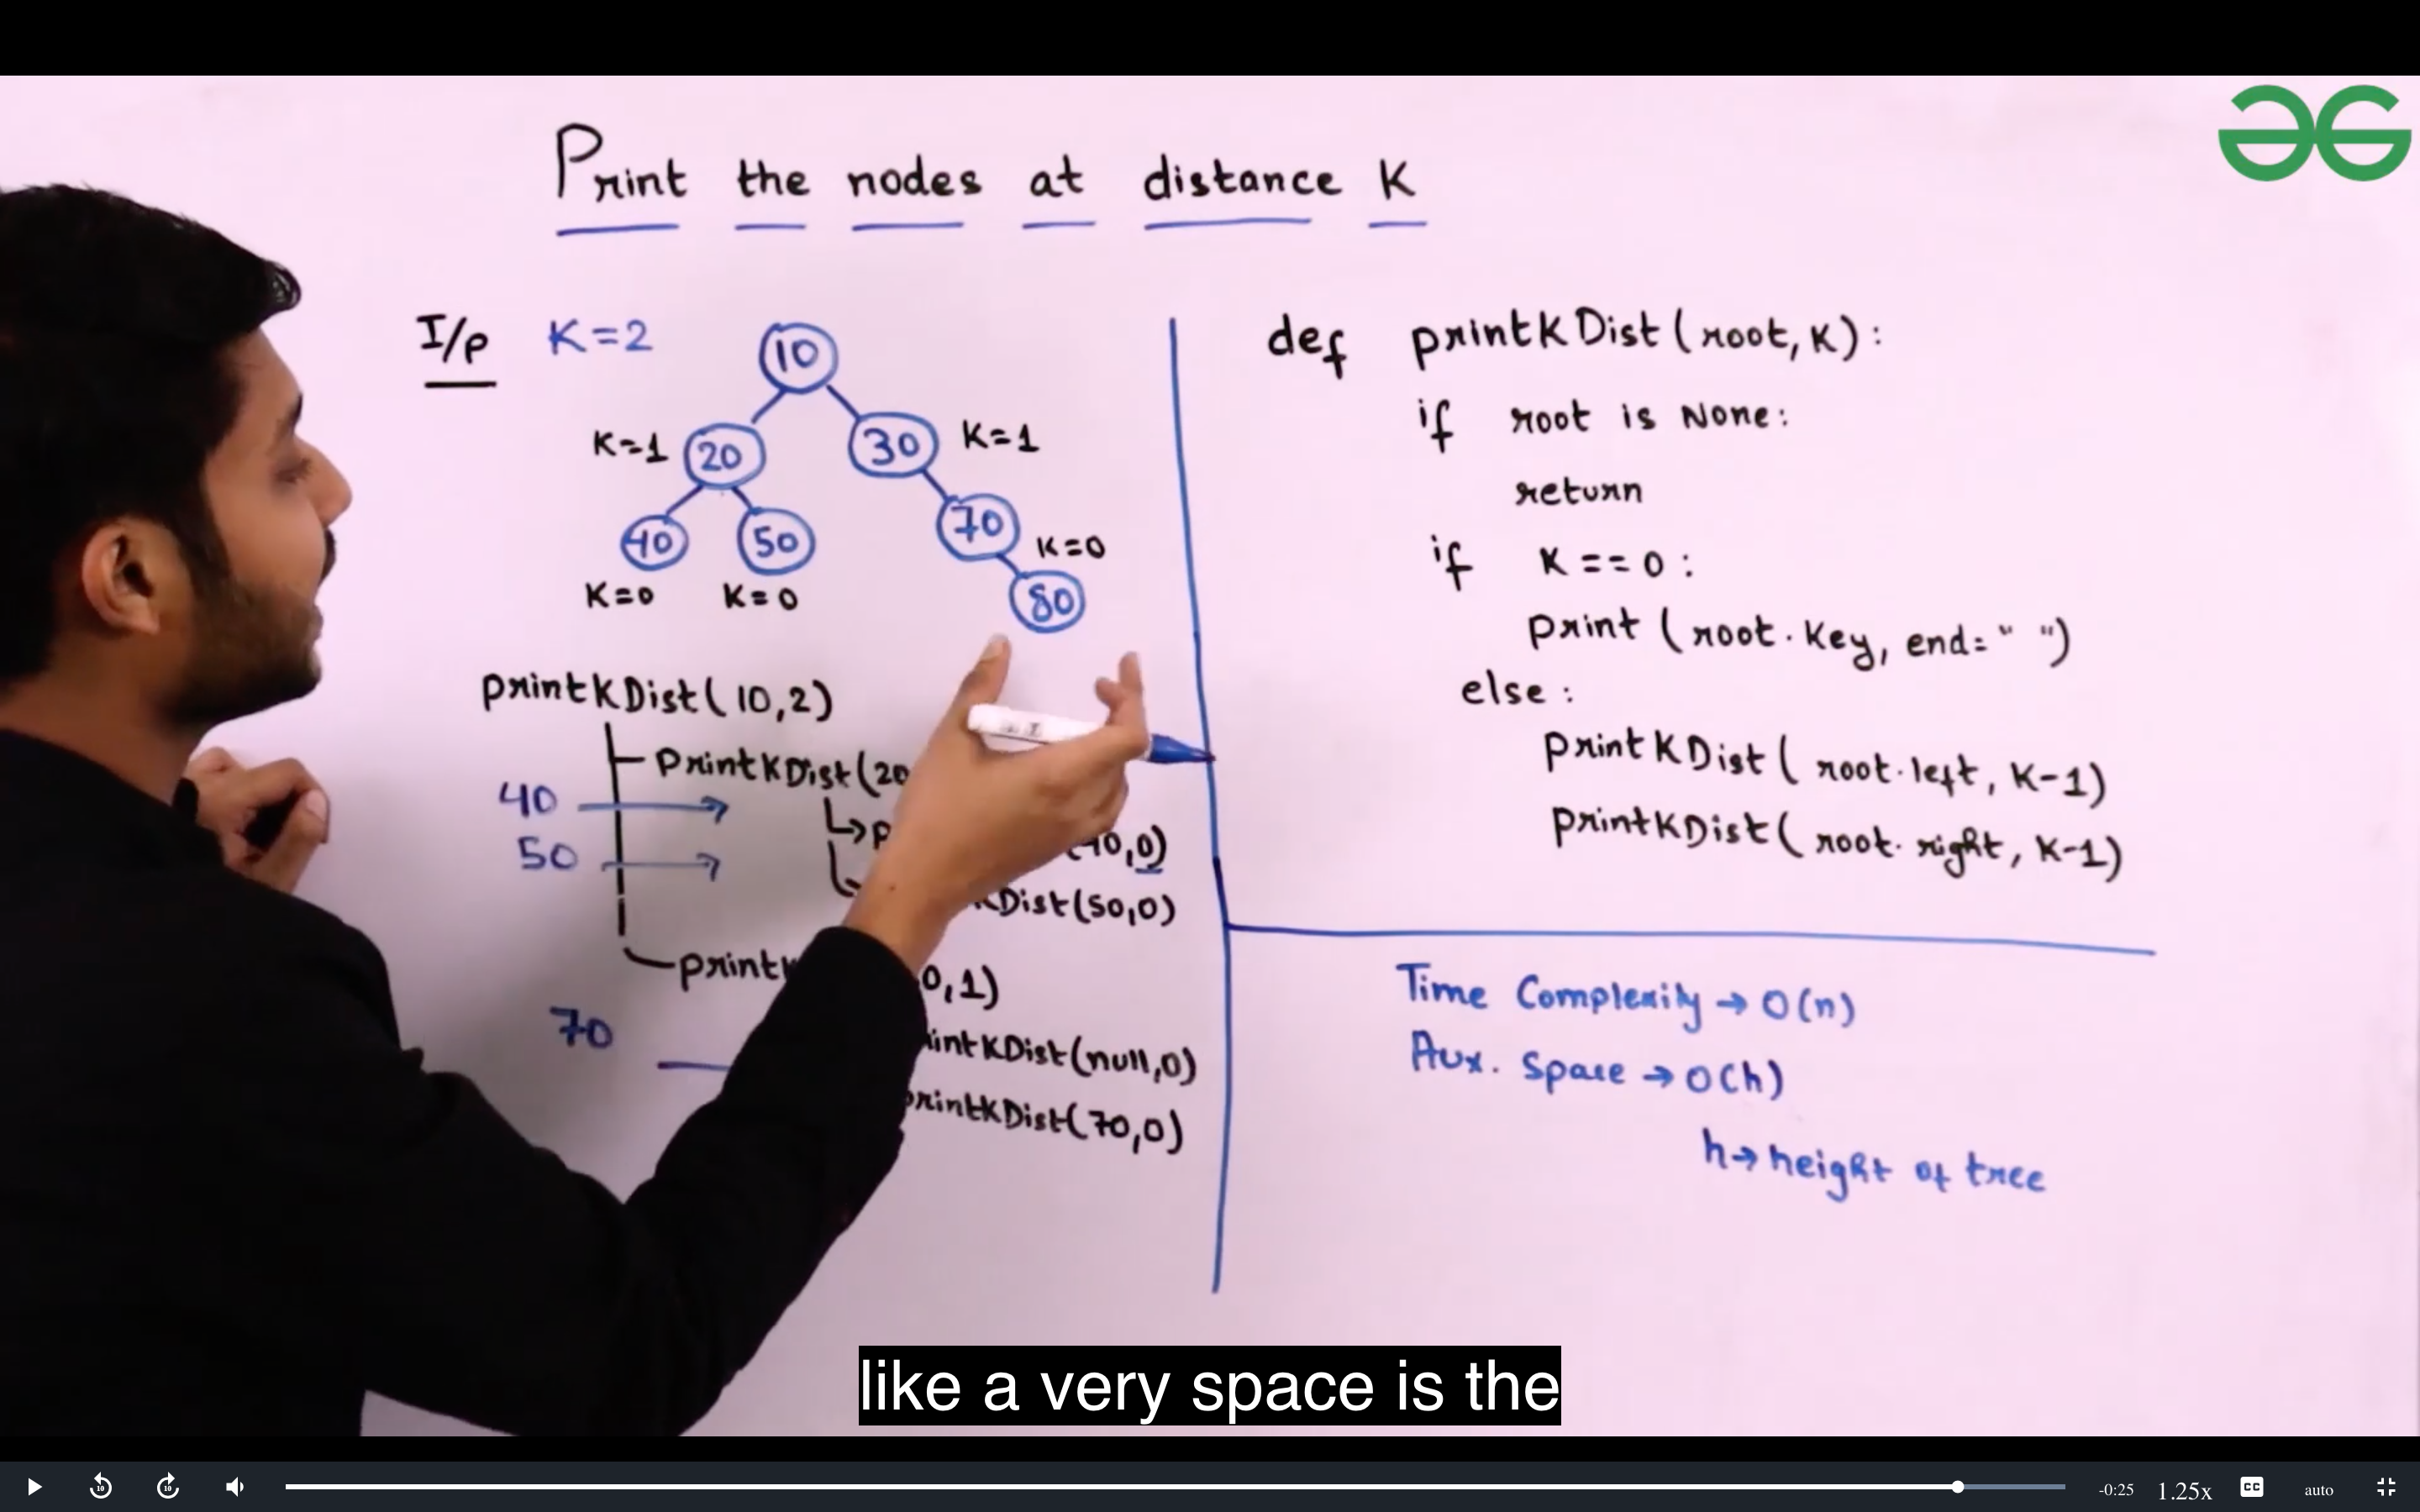 Print the nodes at distance K
I/p K=2
10
K=1 20 30 K=1
40 50 70
K=0 K=0 K=0
80
printKDist(10,2)
printKDist(20
40
,0)
50
Dist(50,0)
0,1)
70
intKDist(null,0)
printKDist(70,0)
def printKDist(root,K):
if root is None:
return
if K==0:
print(root.key, end=" ")
else:
printKDist(root.left, K-1)
printKDist(root.right, K-1)
Time Complexity → O(n)
Aux. Space → O(h)
h→height of tree
like a very space is the
10 10 -0:25 1.25x CC auto